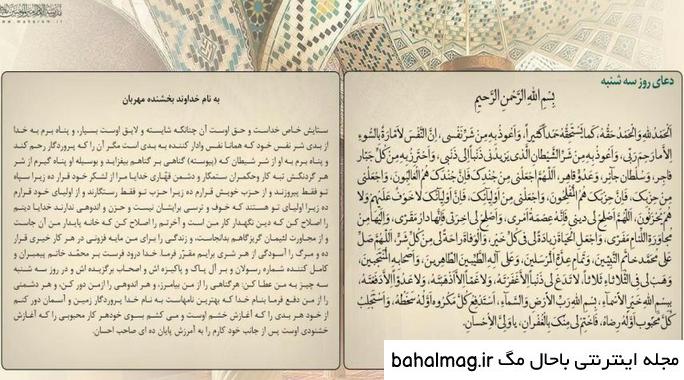 دعای روز سه شنبه
بِسْمِ اللهِ الرَّحْمنِ الرَّحیمِ
اَلْحَمْدُ لِلّهِ وَالْحَمْدُ حَقُّهُ، كَما يَسْتَحِقُّهُ حَمْداً كَثيراً، وَاَعُوذُ بِهِ مِنْ شَرِّ نَفْسي، اِنَّ النَّفْسَ لَاَمّارَةٌ بِالسُّوءِ
اِلاّ ما رَحِمَ رَبّي، وَاَعُوذُ بِهِ مِنْ شَرِّ الشَّيْطانِ الَّذي يَزيدُني ذَنْباً اِلى ذَنْبي، وَاَحْتَرِزُ بِهِ مِنْ كُلِّ جَبّارٍ
فاجِرٍ، وَسُلْطانٍ جائِرٍ، وَعَدُوٍّ قاهِرٍ، اَللّهُمَّ اجْعَلْني مِنْ جُنْدِكَ فَاِنَّ جُنْدَكَ هُمُ الْغالِبُونَ، وَاجْعَلْني
مِنْ حِزْبِكَ، فَاِنَّ حِزْبَكَ هُمُ الْمُفْلِحُونَ، وَاجْعَلْني مِنْ اَوْلِيآئِكَ، فَاِنَّ اَوْلِيآئَكَ لا خَوْفٌ عَلَيْهِمْ وَلا
هُمْ يَحْزَنُونَ، اَللّهُمَّ اَصْلِحْ لي ديني فَاِنَّهُ عِصْمَةُ اَمْري، وَاَصْلِحْ لي اخِرَتي فَاِنَّها دارُ مَقَرّي، وَاِلَيْها مِنْ
مُجاوَرَةِ اللِّئامِ مَفَرّي، وَاجْعَلِ الْحَيوةَ زِيادَةً لي في كُلِّ خَيْرٍ، وَالْوَفاةَ راحَةً لي مِنْ كُلِّ شَرٍّ، اَللّهُمَّ صَلِّ
عَلى مُحَمَّدٍ خاتَمِ النَّبِيّينَ، وَتَمامِ عِدَّةِ الْمُرْسَلينَ، وَعَلى آلِهِ الطَّيِّبينَ الطّاهِرينَ، وَاَصْحابِهِ الْمُنْتَجَبينَ،
وَهَبْ لي فِي الثُّلاثآءِ ثَلاثاً، لا تَدَعْ لي ذَنْباً اِلاّ غَفَرْتَهُ، وَلا غَمّاً اِلاّ اَذْهَبْتَهُ، وَلا عَدُوّاً اِلاّ دَفَعْتَهُ،
بِبِسْمِ اللهِ خَيْرِ الْاَسْمآءِ، بِسْمِ اللهِ رَبِّ الْاَرْضِ وَالسَّمآءِ، اَسْتَدْفِعُ كُلَّ مَكْرُوهٍ اَوَّلُهُ سَخَطُهُ، وَاَسْتَجْلِبُ
كُلَّ مَحْبُوبٍ اَوَّلُهُ رِضاهُ، فَاخْتِمْ لي مِنْكَ بِالْغُفْرانِ، يا وَلِيَّ الْاِحْسانِ.
به نام خداوند بخشنده مهربان
ستایش خاص خداست و حق اوست آن چنانکه شایسته و لایق اوست بسیار، و پناه برم به خدا
از بدی شر نفس خود که همانا نفس وادار کننده به بدی است مگر آن را که پروردگار رحم کند
و پناه برم به او از شر شیطان که (پیوسته) گناهی بر گناهم بیفزاید و بوسیله او پناه گیرم از شر
هر گردنکش تبه کار وحکمران ستمکار و دشمن قهّاری خدایا مرا از لشکر خود قرار ده زیرا سپاه
تو فقط پیروزند و از حزب خویش قرارم ده زیرا حزب تو فقط رستگارند و از اولیای خود قرارم
ده زیرا اولیای تو هستند که خوف و ترسی برایشان نیست و حزن و اندوهی ندارند خدایا دینم
را اصلاح کن که دین نگهدار کار من است و آخرتم را اصلاح کن که خانه پایدار من آن جاست
و از مجاورت لئیمان گریزگاهم بدانجاست، و زندگی را برای من مایه فزونی در هر کار خیری قرار
ده و مرگ را آسودگی از هر شری برایم مقرّر فرما. خدا درود فرست بر محمّد خاتم پیمبران و
کامل کننده شماره رسولان و بر آل پاک و پاکیزه اش و اصحاب برگزیده اش و در روز سه شنبه
سه چیز به من عطا کن: هرگناهی را از من بیامرز، و هر اندوهی را ازمن دور کن، و هر دشمنی
را از من دفع فرما بنام خدا که بهترین نامهاست به نام خدا پروردگار زمین و آسمان دور کنم
از خود هر بدی را که آغازش خشم اوست و می کشم بسوی خودهر کار محبوبی را که آغازش
خشنودی اوست پس از جانب خود کارم را به آمرزش پایان ده ای صاحب احسان.
مجله اینترنتی باحال مگ bahalmag.ir